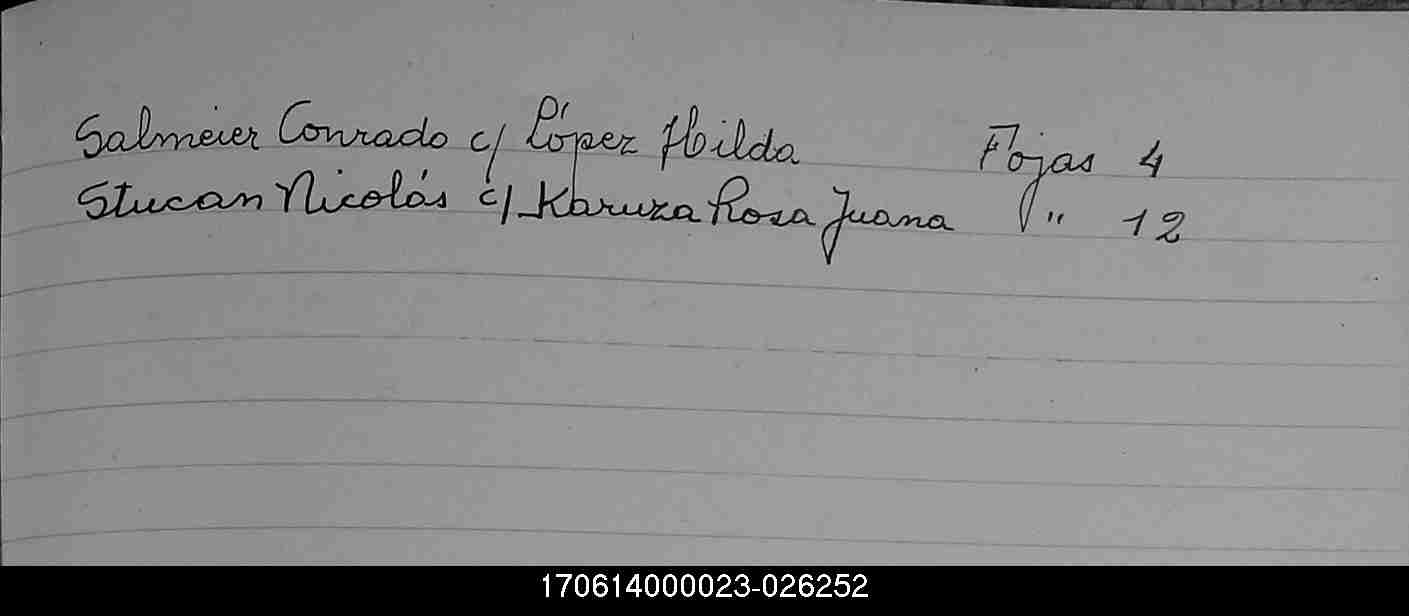 Salmeier Conrado c/ López Hilda Fojas 4
Stucan Nicolás c/ Karuza Rosa Juana " 12
170614000023-026252